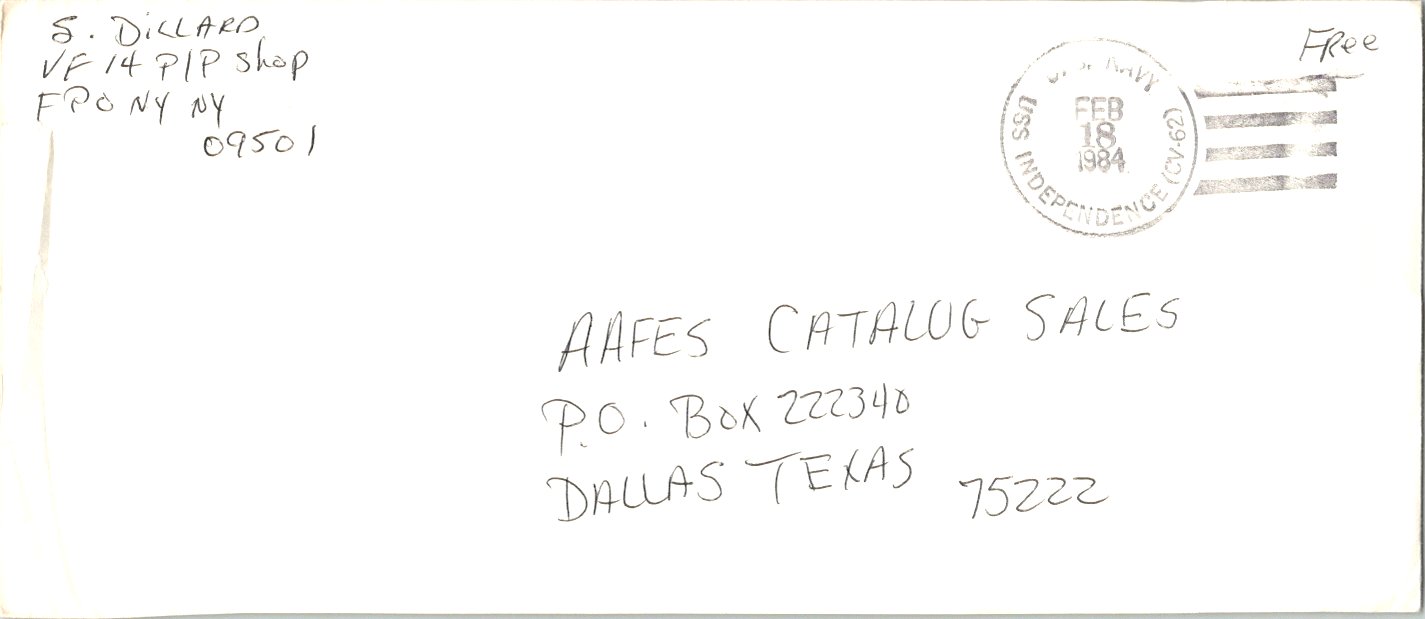 S. DILLARD
VF 14 P/P Shop
FPO NY NY
09501
FRee
U.S. NAVY
FEB
18
1984
USS INDEPENDENCE (CV-62)
AAFES CATALOG SALES
P.O. BOX 222340
DALLAS TEXAS 75222